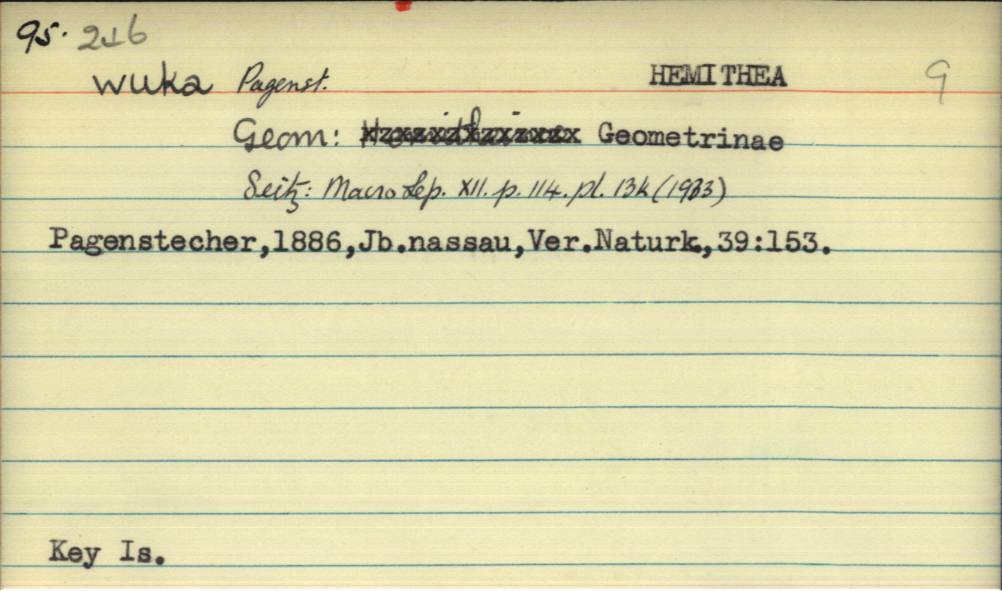 95. 216
wuka Pagenst. HEMITHEA 9
Geom: Geometrinae
Seitz: Macro Lep. XII. p. 114. pl. 13k (1933)
Pagenstecher,1886,Jb.nassau,Ver.Naturk.,39:153.
Key Is.